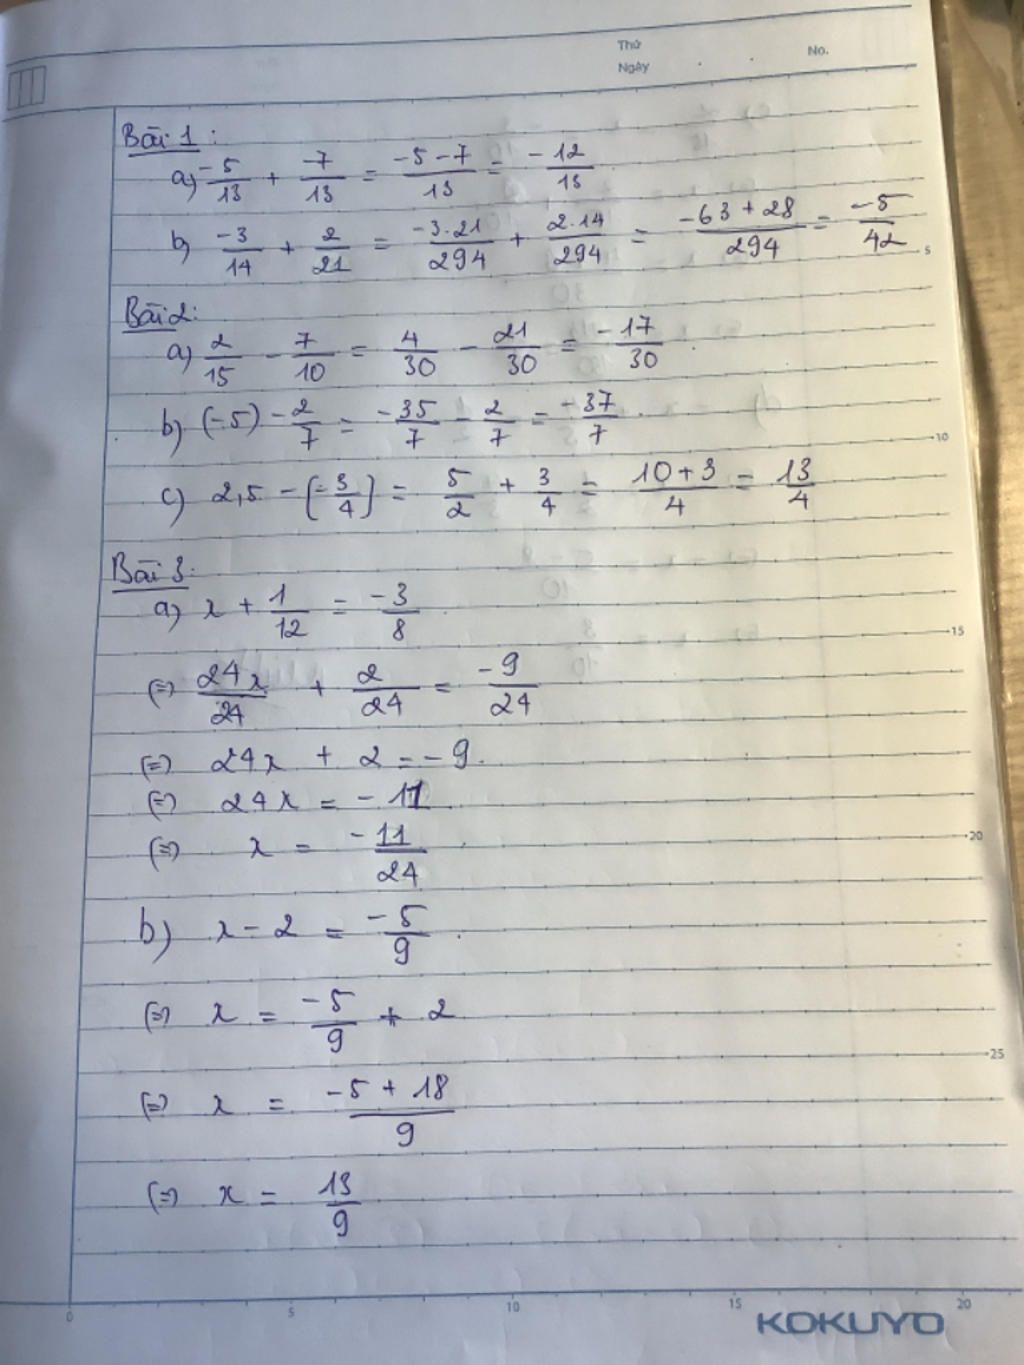 Thứ
No.
Ngày
Bài 1 :
a) -5/13 + -7/13 = -5-7/13 = -12/13
b) -3/14 + 2/21 = -3.21/294 + 2.14/294 = -63+28/294 = -5/42
5
Bài 2:
a) 2/15 - 7/10 = 4/30 - 21/30 = -17/30
b) (-5) - 2/7 = -35/7 - 2/7 = -37/7
10
c) 2,5 - (-3/4) = 5/2 + 3/4 = 10+3/4 = 13/4
Bài 3:
a) x + 1/12 = -3/8
15
(=) 24x/24 + 2/24 = -9/24
(=) 24x + 2 = -9.
(=) 24x = -11
20
(=) x = -11/24
b) x - 2 = -5/9
(=) x = -5/9 + 2
25
(=) x = -5 + 18/9
(=) x = 13/9
0 5 10 15 20
KOKUYO